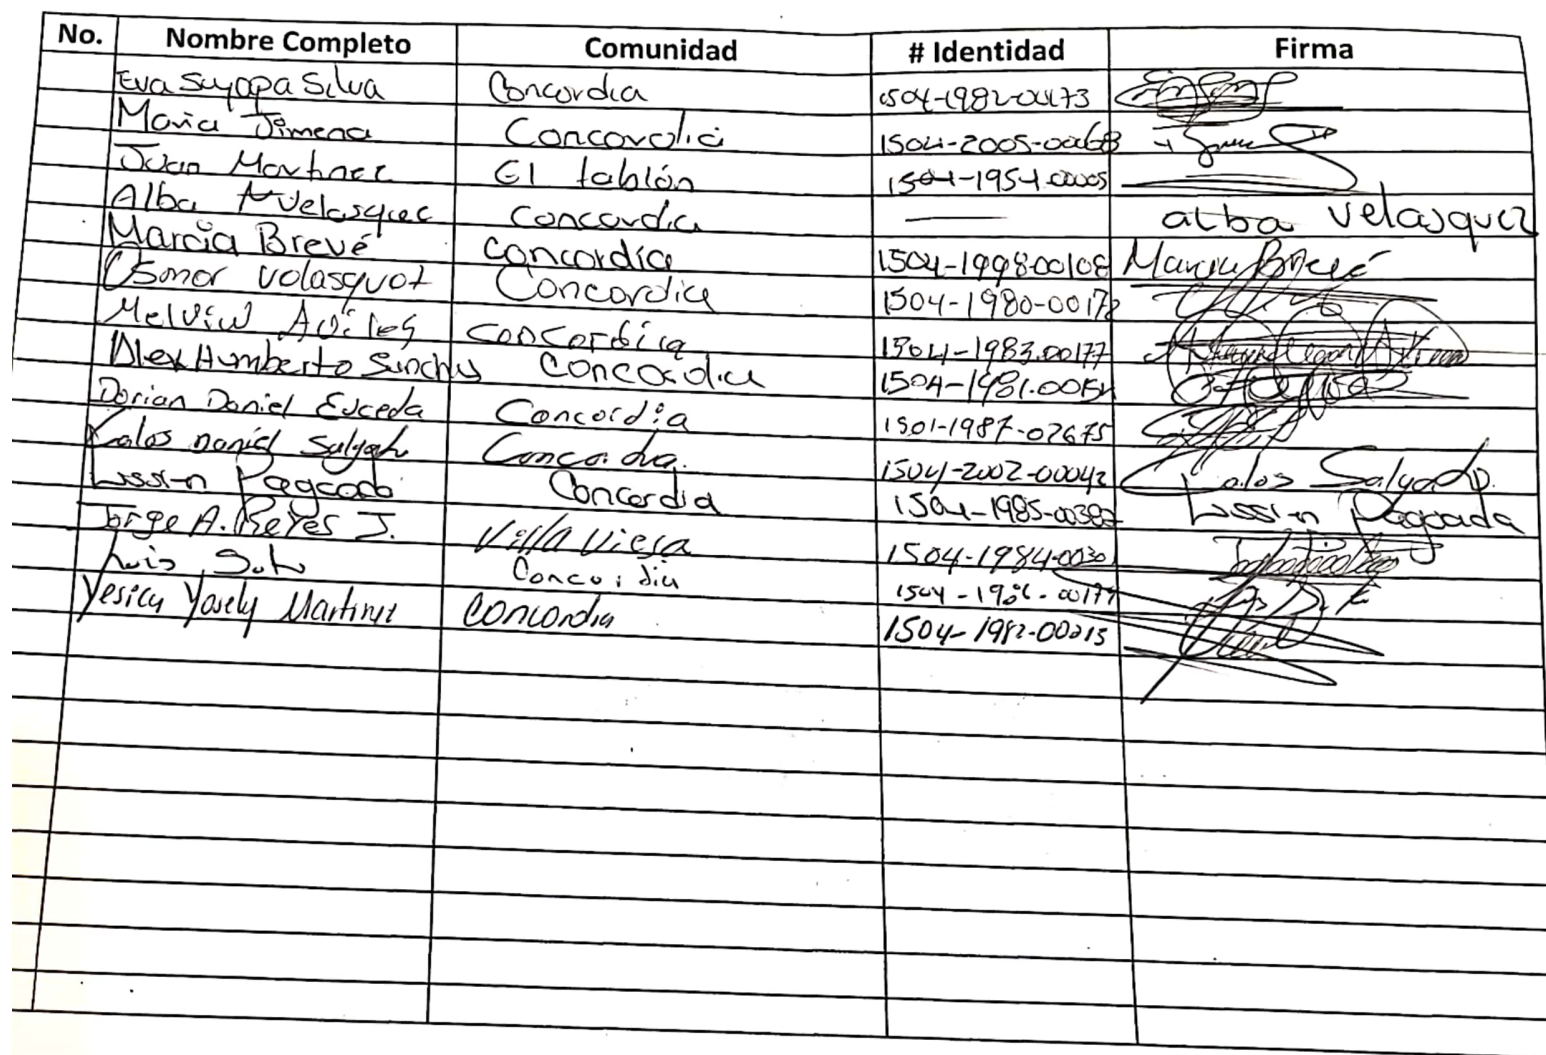 No. Nombre Completo Comunidad # Identidad Firma
Eva Suyapa Silva Concordia 1504-1982-00173
Maria Jimena Concordia 1504-2005-00068
Juan Martinez El tablón 1504-1954-00005
Alba Velasquez Concordia — alba velasquez
Marcia Brevé Concordia 1504-1998-00108 Marcia Brevé
Osmar Velasquez Concordia 1504-1980-00172
Melvin Aviles Concordia 1504-1983-00177
Alex Humberto Sanchez Concordia
Dorian Daniel Euceda Concordia 1501-1987-02675
Calos Daniel Salgado Concordia 1504-2002-00042 Calos Salgado
Lissin Pagoada Concordia 1504-1985-00382 Lissin Pagoada
Jorge A. Reyes J. Villa Vieja
Luis Soto Concordia
Yesica Yosely Martinez Concordia 1504-1982-00213